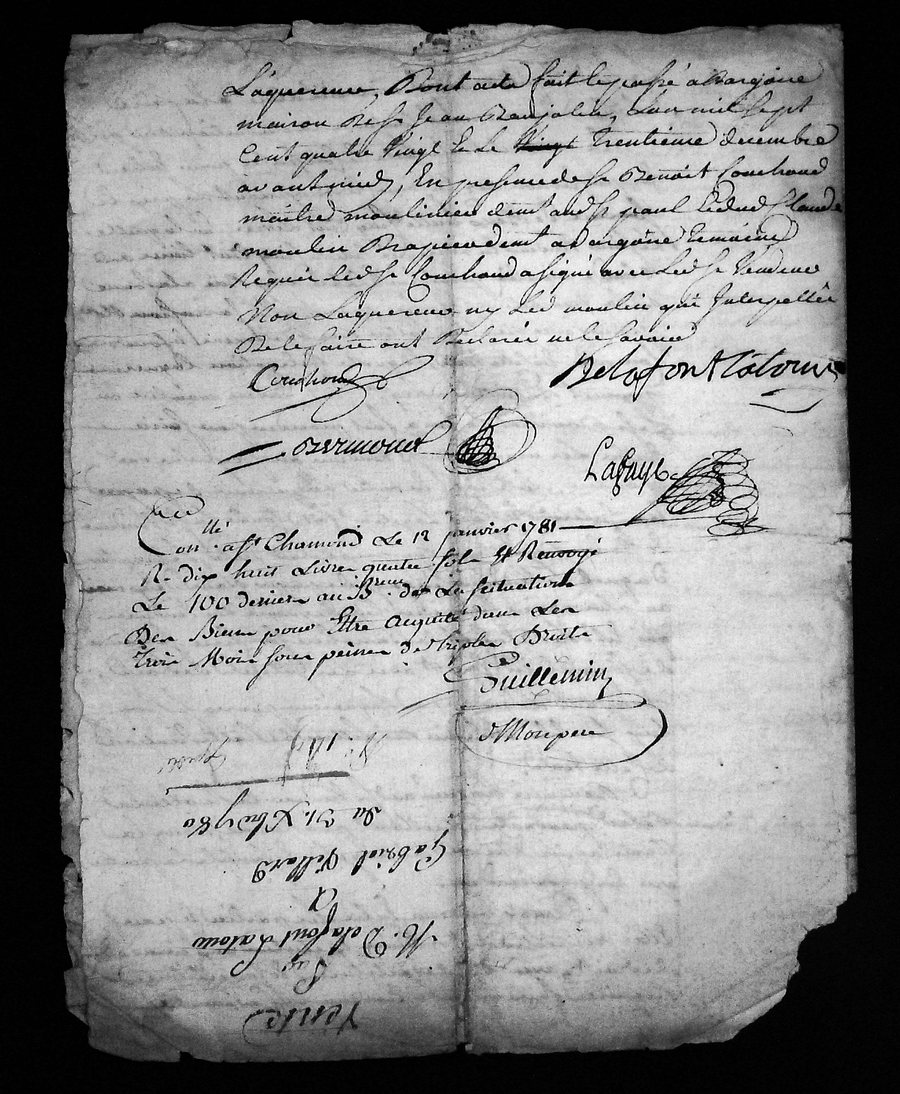 L'aquereur, Dont acte fait le passé a Bargoire
maison De Sr Jean Beaujolin, L'an mil sept
Cent quatre Vingt Et Le Vingt Trentieme decembre
avant midy, En presence de Sr Benoit Couchoud
maitre moulinier demt audt paul Et de Claude
moulin Drapier demt a Bargoire temoins
Requis led Sr Couchoud a signé avec Led Sr Vendeur
Non Laquereur ny Led moulin qui Interpellés
De le faire ont Declaré ne le savoir
Couchoud
Delafont Latour
Lafaye
Conllé a St Chamond Le 12 janvier 1781
R. dix huit Livres quatre sols Et Renvoyé
Le 100 denier au Beau de La Scituation
Des Biens pour Etre acquité dans Les
Trois Mois sous peine de triple Droits
Guillemin
Vente
Par
M. Delafont Latour
A
Gabriel Villard
Du 31. Xbre 1780